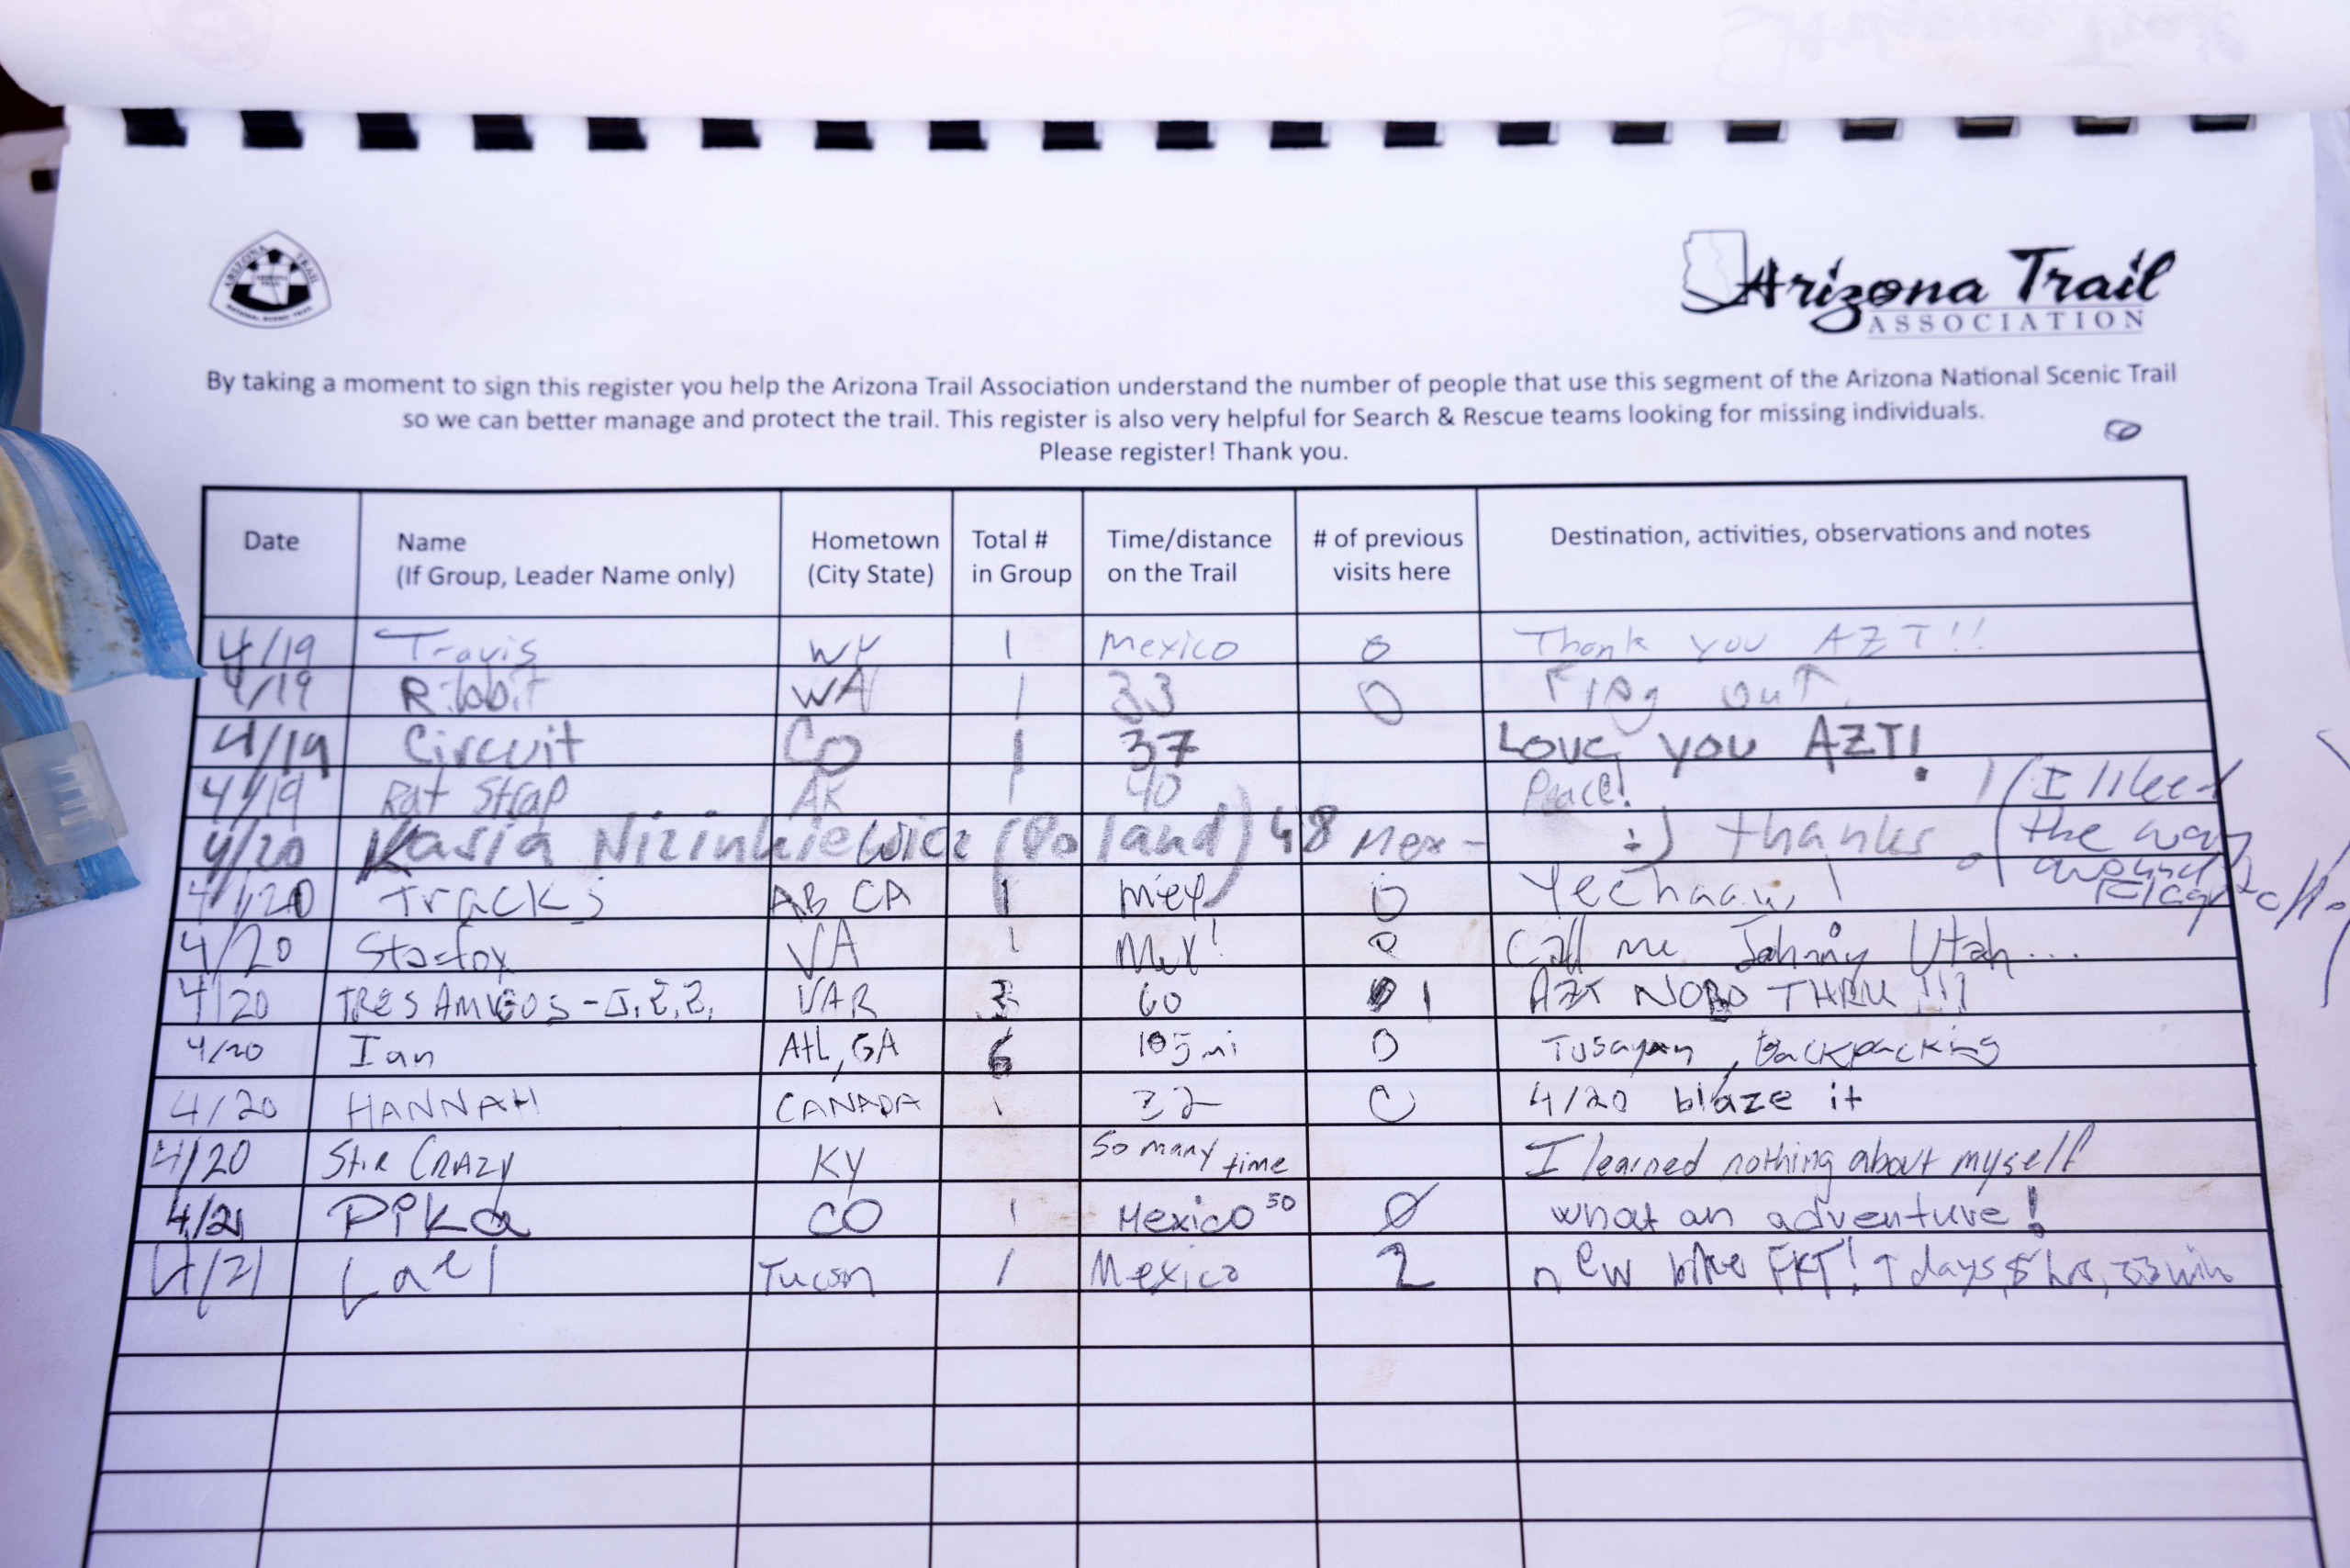 Arizona Trail
ASSOCIATION
By taking a moment to sign this register you help the Arizona Trail Association understand the number of people that use this segment of the Arizona National Scenic Trail
so we can better manage and protect the trail. This register is also very helpful for Search & Rescue teams looking for missing individuals.
Please register! Thank you.
Date Name (If Group, Leader Name only) Hometown (City State) Total # in Group Time/distance on the Trail # of previous visits here Destination, activities, observations and notes
4/19 Travis WY 1 Mexico 0 Thank you AZT!!
4/19 WA 1 33 0 out
4/19 Circuit CO 1 37 Love you AZT!
4/19 Rat Strap AK 1 40 Peace!
4/20 Kasia Nizinkiewicz (Poland) 48 Mex - :) thanks (I liked the way around
4/20 Tracks AB CA 1 Mex 0 Yeehaaw!
4/20 Starfox VA 1 Mex! 0 Call me Johnny Utah...
4/20 TRES AMIGOS - VAR 3 60 1 AZT NOBO THRU !!!
4/20 Ian Atl, GA 6 105 mi 0 Tusayan, Backpacking
4/20 HANNAH CANADA 1 32 0 4/20 blaze it
4/20 Stir CRAZY KY So many time I learned nothing about myself
4/21 Pika CO 1 Mexico 50 Ø what an adventure!
4/21 Lael Tucson 1 Mexico 2 new bike FKT! days, hrs, min